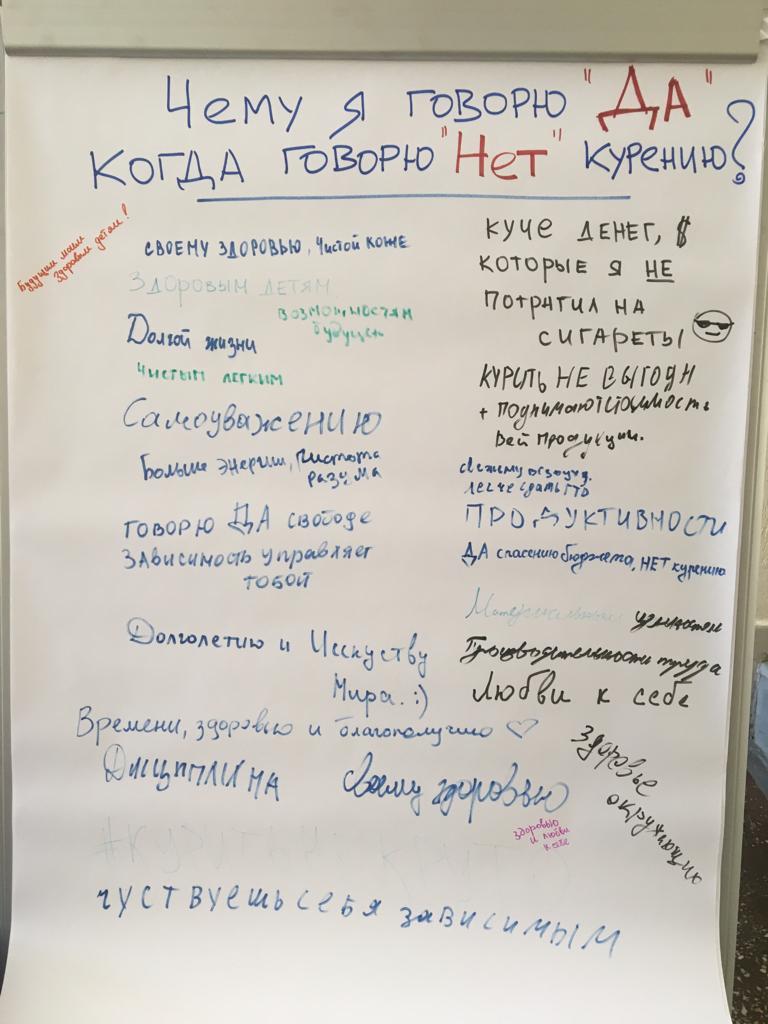 Чему я говорю "ДА"
когда говорю "Нет" курению?
Будущим моим
здоровым детям!
своему здоровью, чистой коже
Здоровым детям
возможностям
будущем
Долгой жизни
Чистым легким
Самоуважению
Больше энергии, чистота
разума
говорю ДА свободе
зависимость управляет
тобой
Долголетию и Исскуству
Мира. :)
куче денег, $
которые я НЕ
потратил на
сигареты
курить не выгодн
+ поднимают стоимость
всей продукции.
свежему воздуху.
легче сдать ГТО
Продуктивности
ДА спасению бюджета, НЕТ курению
Материальным ценностям
Производительности труда
Любви к себе
Времени, здоровью и благополучию ♡
Дисциплина
Своему здоровью
здоровье
окружающих
здоровью
и любви
к себе
чуствуешь себя зависимым